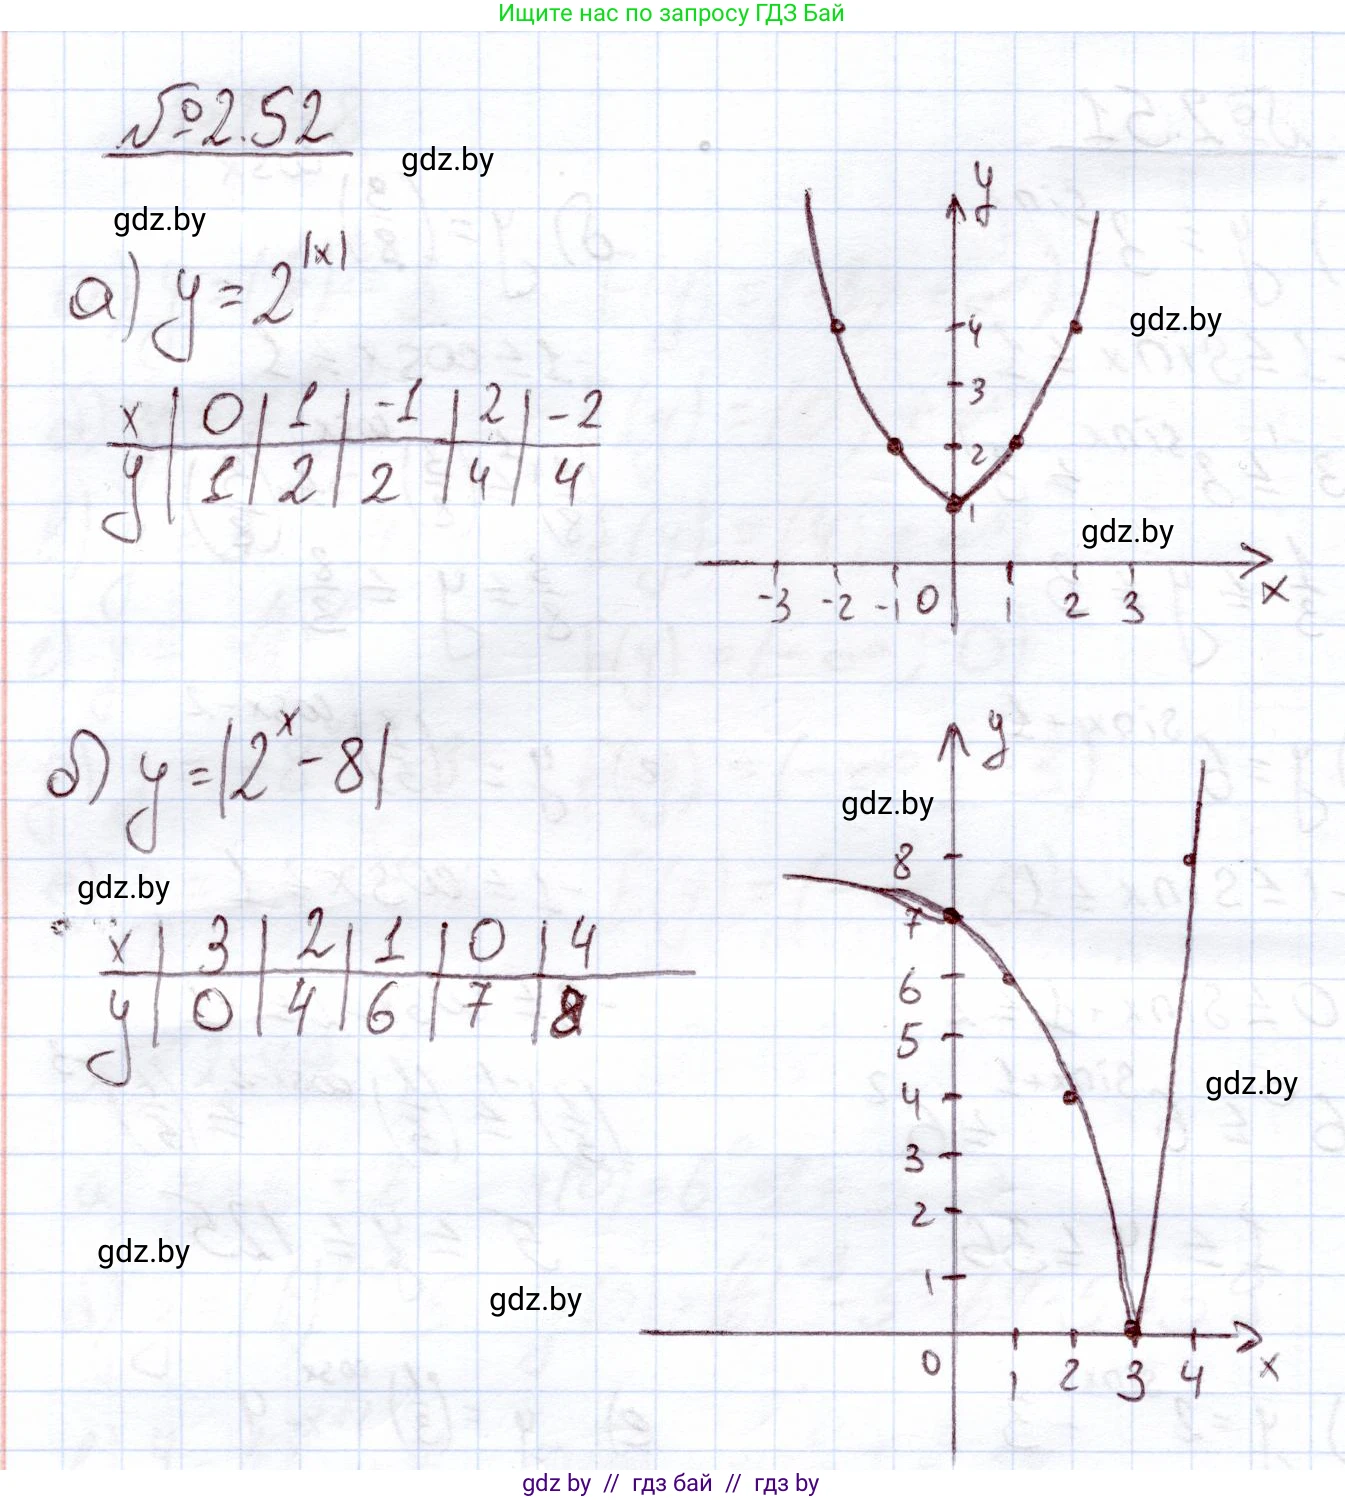 Ищите нас по запросу ГДЗ Бай
№2.52
gdz.by
gdz.by
а) y = 2^|x|
x | 0 | 1 | -1 | 2 | -2
y | 1 | 2 | 2 | 4 | 4
y
4
3
2
1
gdz.by
gdz.by
-3 -2 -1 0 1 2 3 x
б) y = |2^x - 8|
gdz.by
x | 3 | 2 | 1 | 0 | 4
y | 0 | 4 | 6 | 7 | 8
y
gdz.by
8
7
6
5
4
3
2
1
gdz.by
0 1 2 3 4 x
gdz.by
gdz.by
gdz by // гдз бай // гдз by